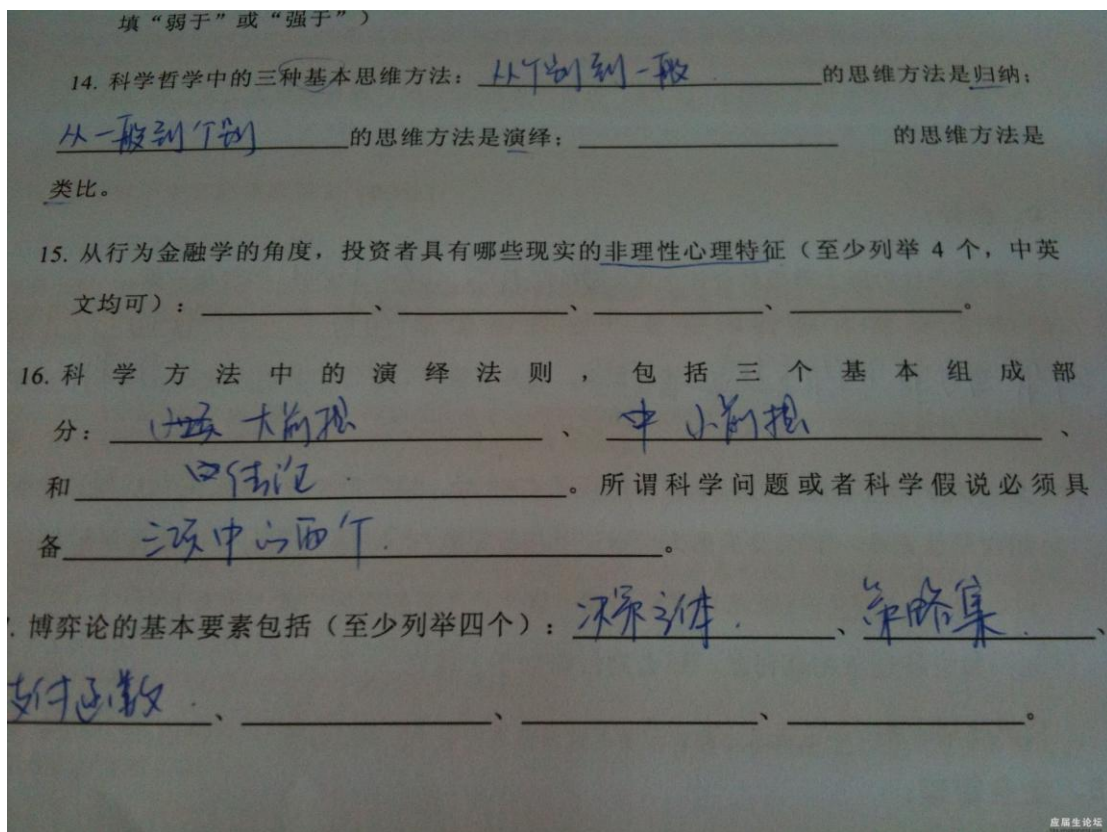 填“弱于”或“强于”）
14. 科学哲学中的三种基本思维方法：从个别到一般的思维方法是归纳；
从一般到个别的思维方法是演绎；________的思维方法是
类比。
15. 从行为金融学的角度，投资者具有哪些现实的非理性心理特征（至少列举 4 个，中英
文均可）：________、________、________、________。
16. 科学方法中的演绎法则，包括三个基本组成部
分：大前提、小前提、
和________。所谓科学问题或者科学假说必须具
备三项中的两个。
. 博弈论的基本要素包括（至少列举四个）：决策主体.、策略集.、
支付函数.、________、________、________。
应届生论坛